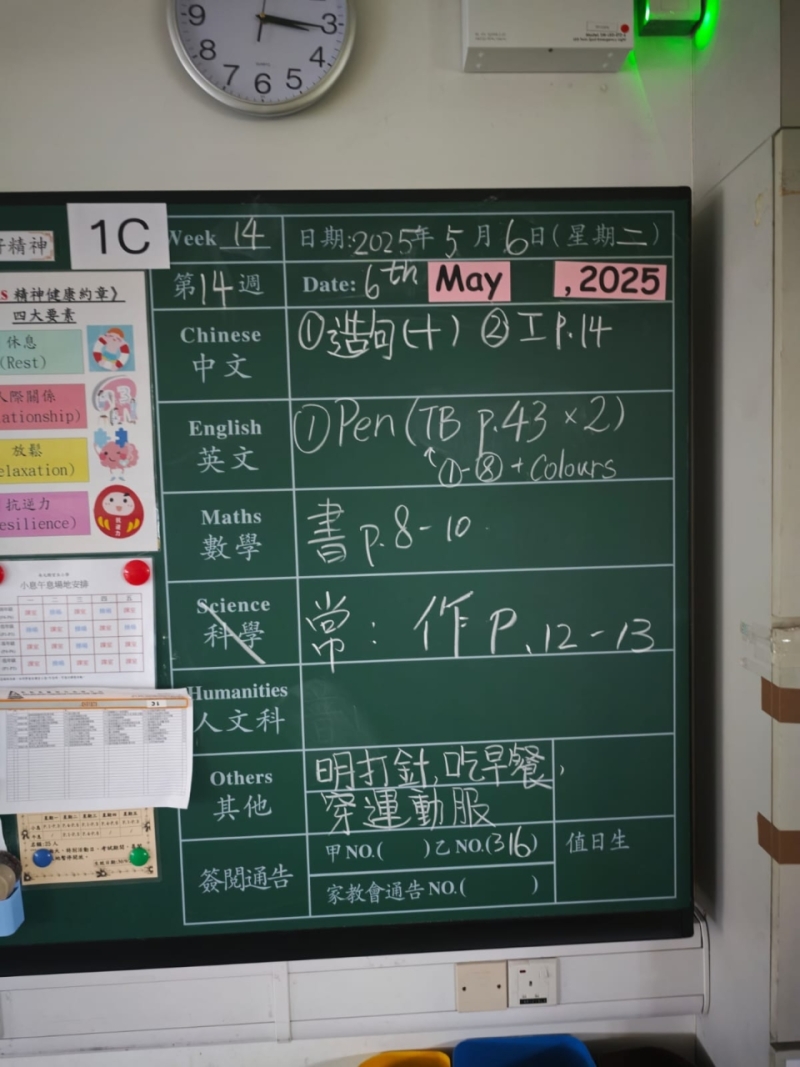 9 3
8 4
7 6 5
1C
好精神
Week 14
日期:2025年5月6日(星期二)
第14週
Date: 6th May , 2025
精神健康約章》
四大要素
休息
(Rest)
人際關係
放鬆
抗逆力
Chinese
中文
①造句(十) ②工 p.14
English
英文
①Pen (TB p.43 ×2)
↑①-⑧ + colours
Maths
數學
書 p.8-10
Science
科學
常: 作 P.12-13
Humanities
人文科
Others
其他
明打針,吃早餐,
穿運動服
簽閱通告
甲NO.( )乙NO.(316)
值日生
家教會通告NO.( )
小息午息場地安排
一 二 三 四 五
31